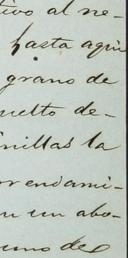 tivo al ne-
hasta aquí
grano de
uelto de-
inillas la
rrendami-
n un abo-
uno de